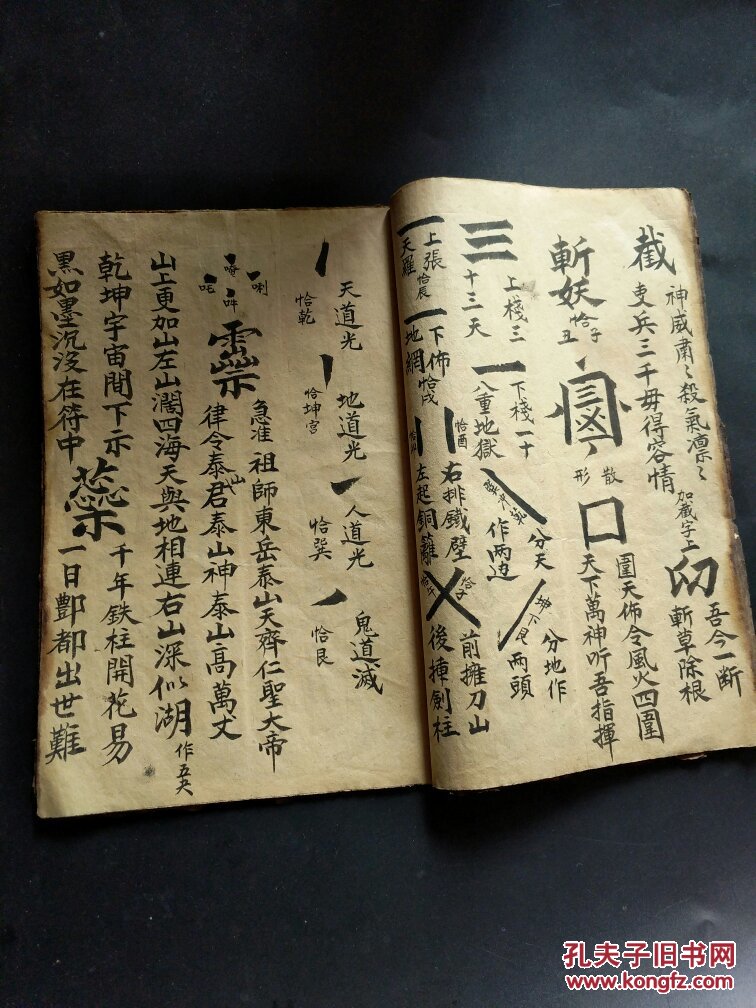 截 神威肅〻殺氣凛〻 加截字上
吏兵三千毋得容情
吾今一断
斬草除根
斬妖 恰子 恰丑
散形
口 圍天佈令風火四圍
天下萬神听吾指揮
三 上棧三
十三天
一 下棧一十
八重地獄
分天
作兩边
坤下艮
分地作
兩頭
一 上張 恰辰
天羅
一 下佈 恰戍
地網
恰酉 右排鐵壁
左起銅籬
恰子 前擁刀山
恰午 後揷劍柱
天道光
恰乾
地道光
恰坤宮
人道光
恰巽
鬼道滅
恰艮
唵 吽 吒 唎
急准 祖師東岳泰山天齊仁聖大帝
律令泰山君泰山神泰山高萬丈
山上更加山左山濶四海天與地相連右山深似湖 作五大
乾坤宇宙間下示
黑如墨沉沒在符中
千年鉄柱開花易
一日酆都出世難
孔夫子旧书网
www.kongfz.com